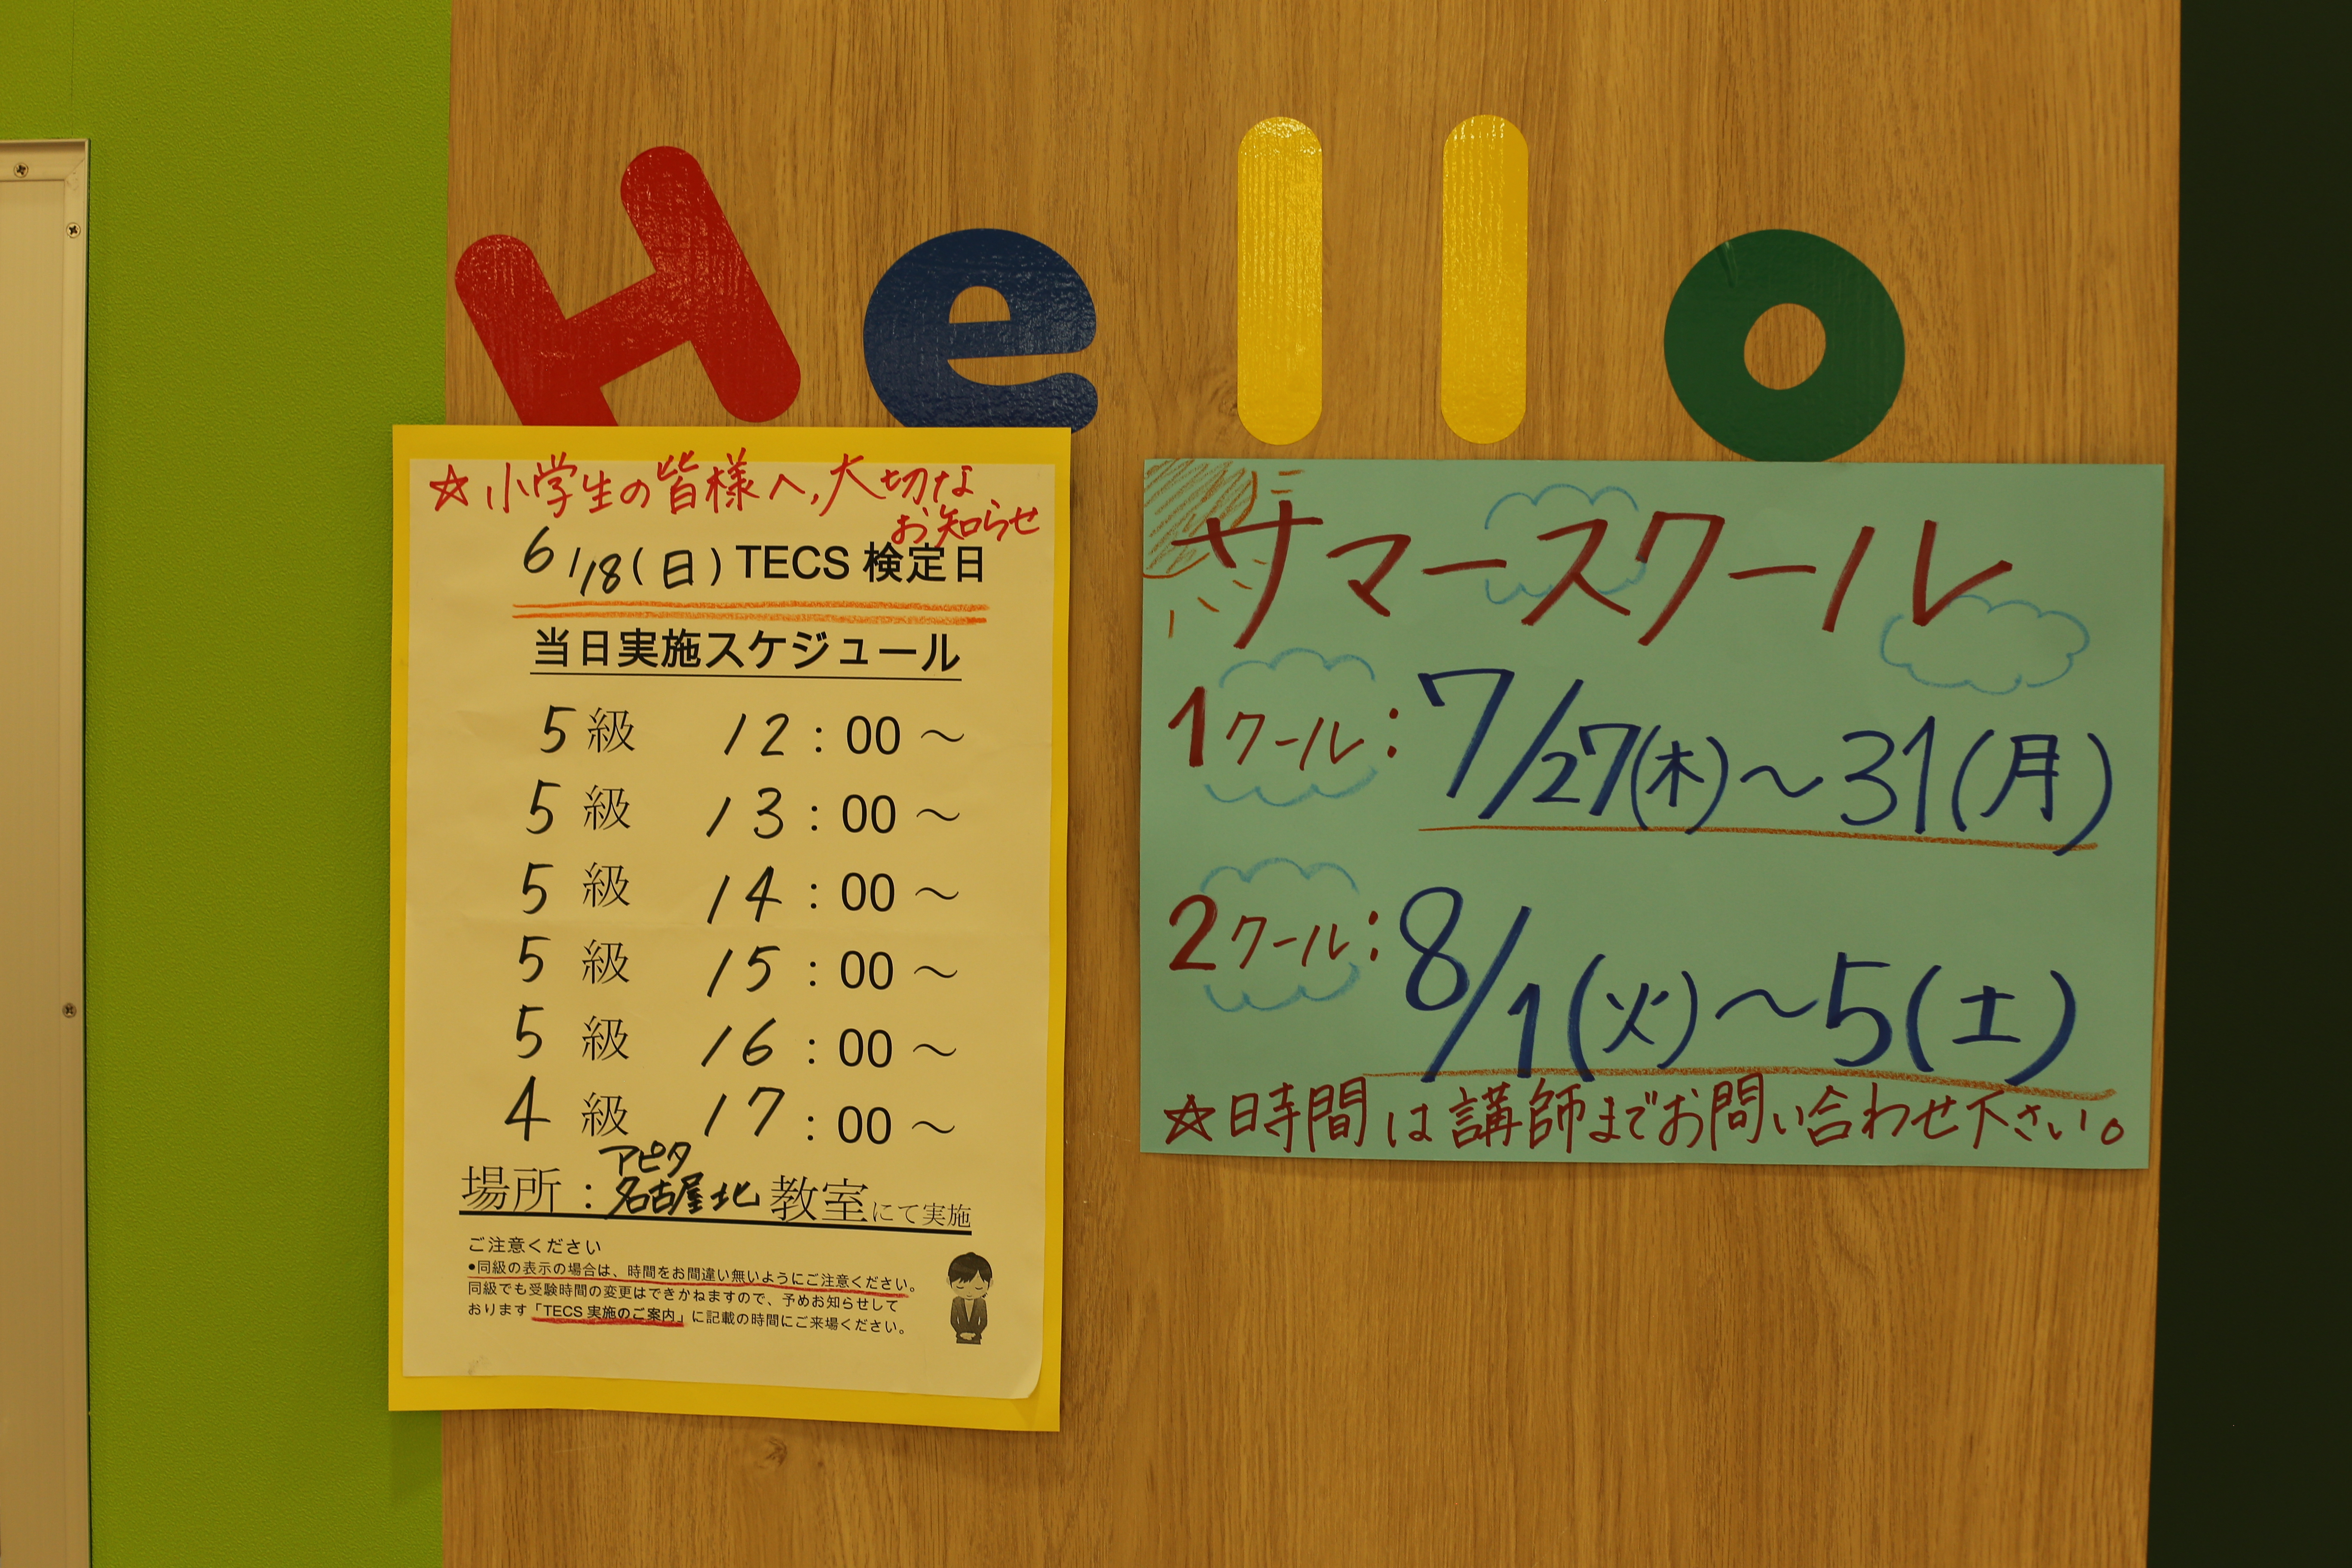 Hello
☆小学生の皆様へ,大切な
お知らせ
6/18(日)TECS 検定日
当日実施スケジュール
5 級 12:00～
5 級 13:00～
5 級 14:00～
5 級 15:00～
5 級 16:00～
4 級 17:00～
アピタ
場所:名古屋北教室にて実施
ご注意ください
●同級の表示の場合は、時間をお間違い無いようにご注意ください。
同級でも受験時間の変更はできかねますので、予めお知らせして
おります「TECS 実施のご案内」に記載の時間にご来場ください。
サマースクール
1クール:7/27(木)～31(月)
2クール:8/1(火)～5(土)
☆日時間は講師までお問い合わせ下さい。